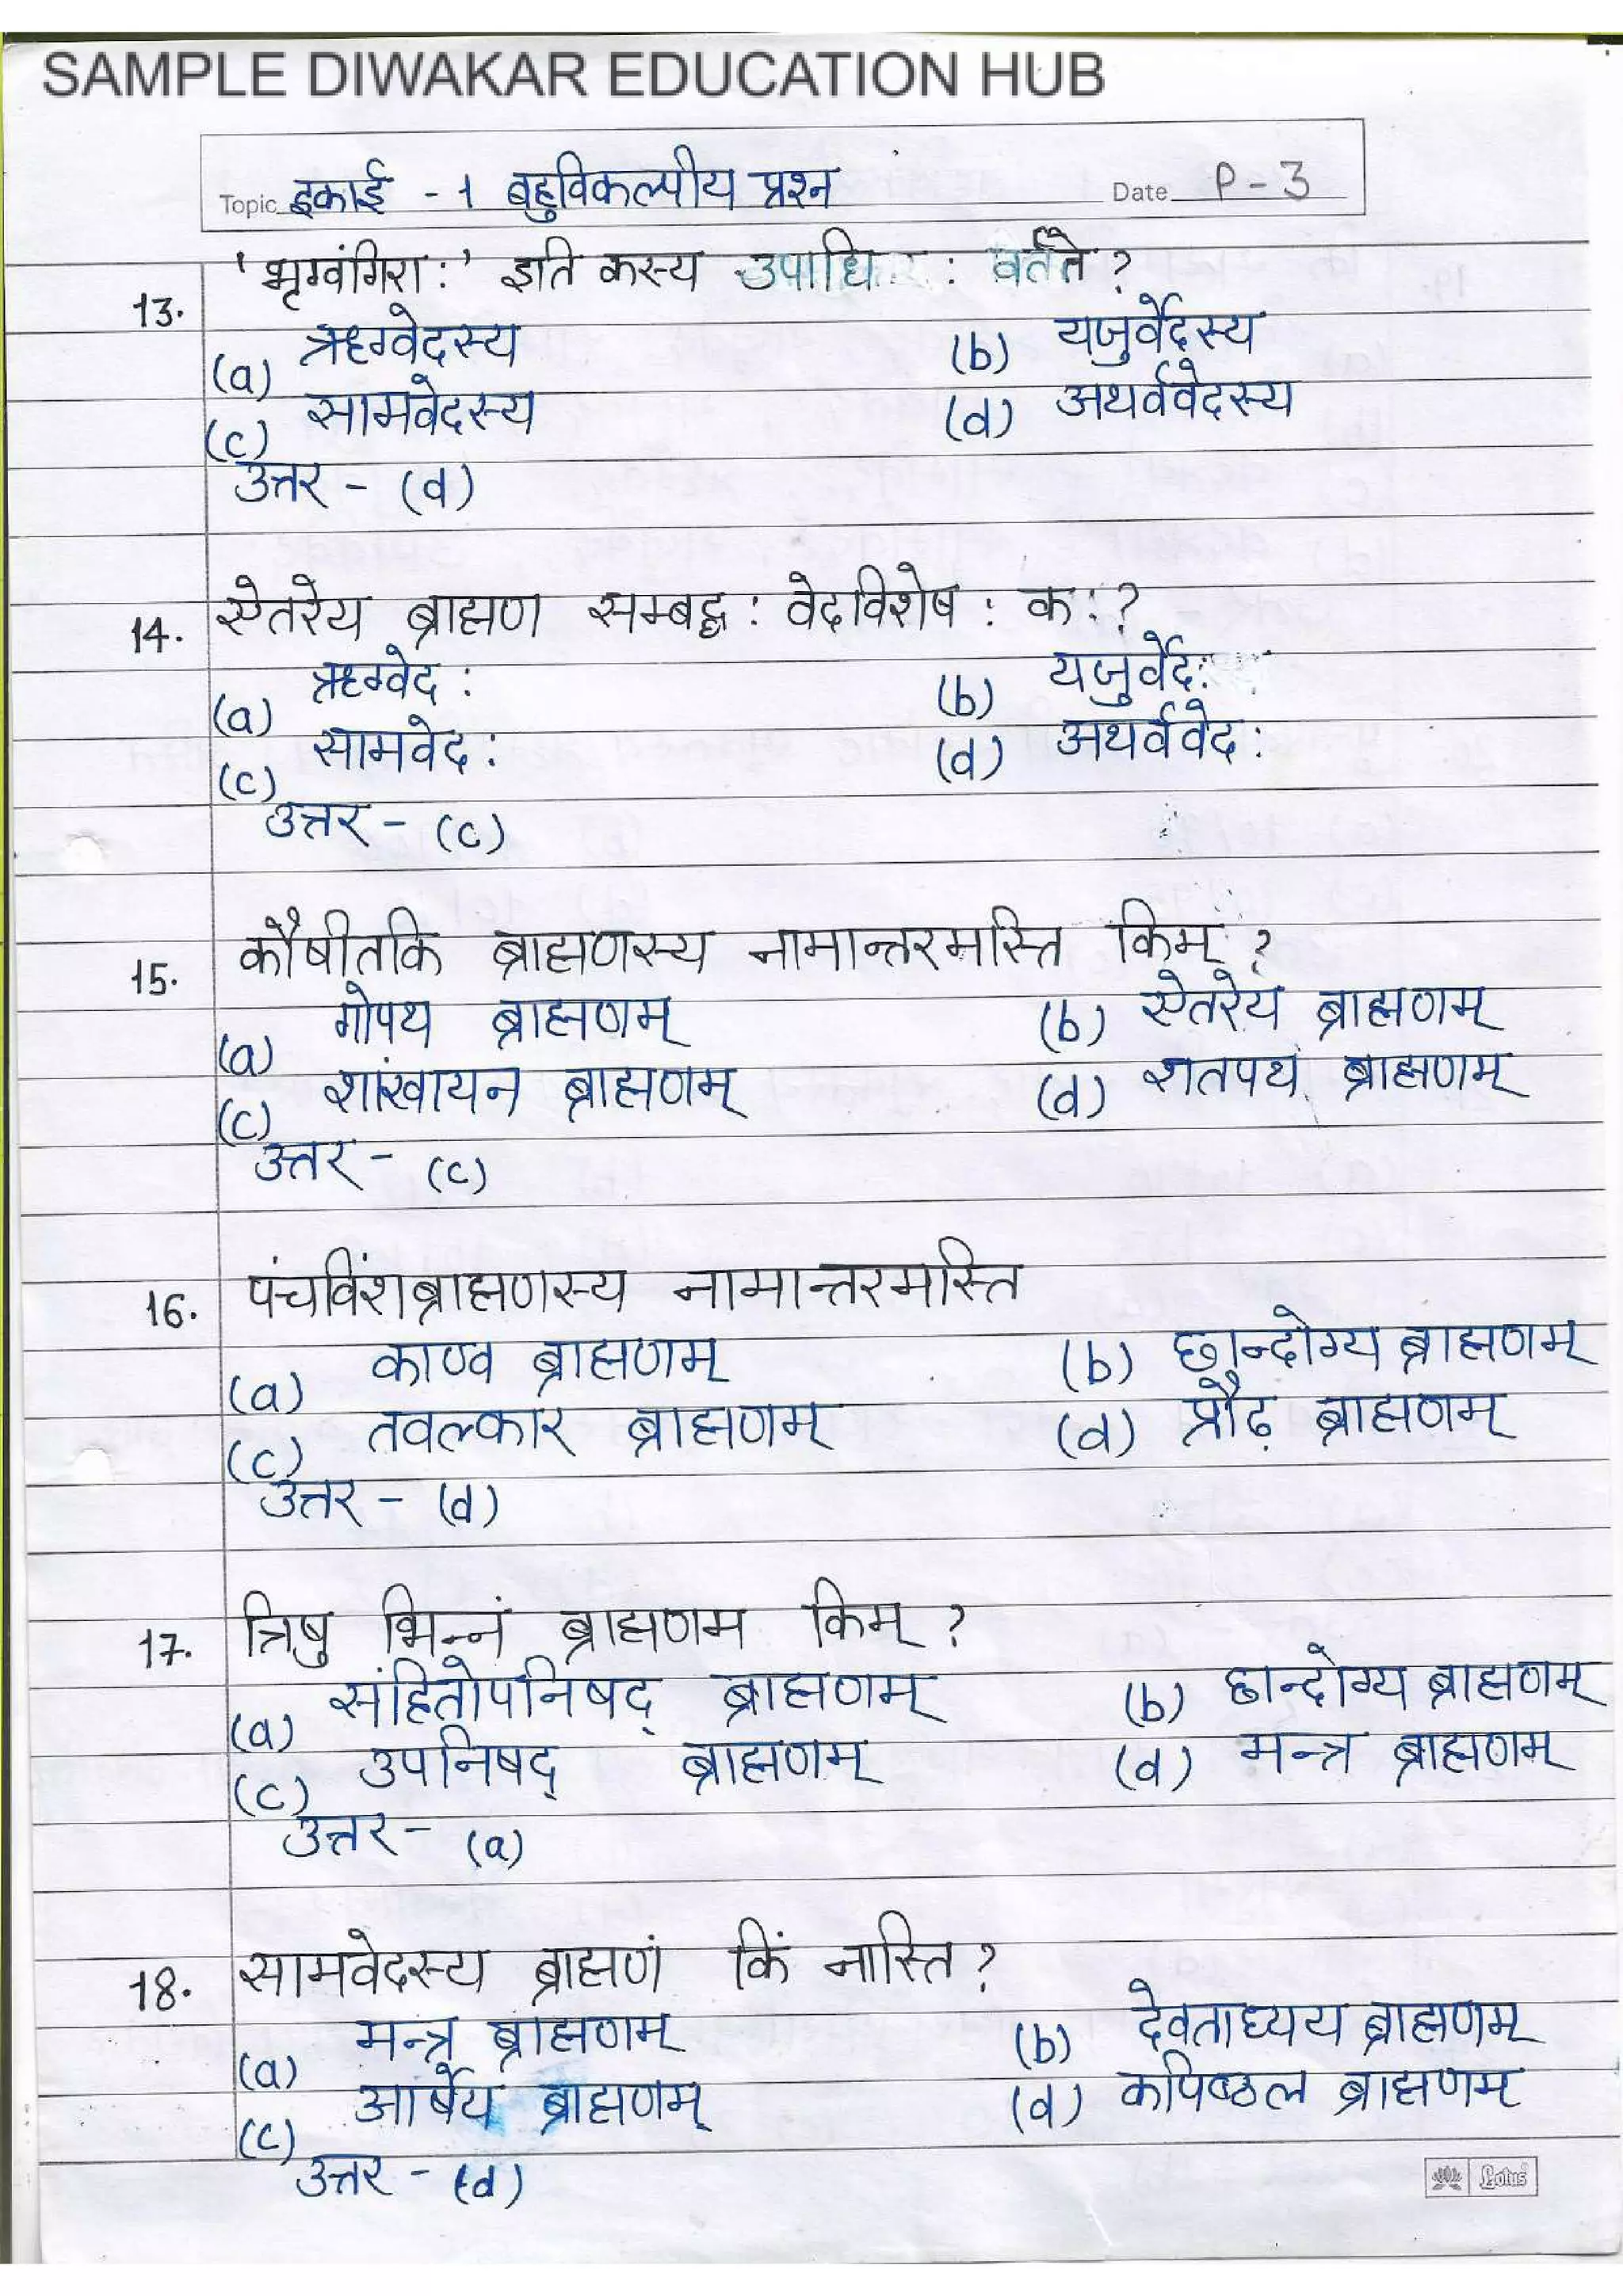 SAMPLE DIWAKAR EDUCATION HUB
Topic इकाई - 1 बहुविकल्पीय प्रश्न Date P - 3
13. 'भृग्वंगिराः' इति कस्य उपाधि : वर्तते ?
(a) ऋग्वेदस्य (b) यजुर्वेदस्य
(c) सामवेदस्य (d) अथर्ववेदस्य
उत्तर - (d)
14. ऐतरेय ब्राह्मण सम्बद्ध : वेदविशेष : कः ?
(a) ऋग्वेद : (b) यजुर्वेद :
(c) सामवेद : (d) अथर्ववेद :
उत्तर - (c)
15. कौषीतकि ब्राह्मणस्य नामान्तरमस्ति किम् ?
(a) गोपथ ब्राह्मणम् (b) ऐतरेय ब्राह्मणम्
(c) शांखायन ब्राह्मणम् (d) शतपथ ब्राह्मणम्
उत्तर - (c)
16. पंचविंशब्राह्मणस्य नामान्तरमस्ति
(a) काण्व ब्राह्मणम् (b) छान्दोग्य ब्राह्मणम्
(c) तवल्कार ब्राह्मणम् (d) प्रौढ़ ब्राह्मणम्
उत्तर - (d)
17. त्रिषु भिन्नं ब्राह्मणम किम् ?
(a) संहितोपनिषद् ब्राह्मणम् (b) छान्दोग्य ब्राह्मणम्
(c) उपनिषद् ब्राह्मणम् (d) मन्त्र ब्राह्मणम्
उत्तर - (a)
18. सामवेदस्य ब्राह्मणं किं नास्ति ?
(a) मन्त्र ब्राह्मणम् (b) देवताध्यय ब्राह्मणम्
(c) आर्षेय ब्राह्मणम् (d) कपिष्ठल ब्राह्मणम्
उत्तर - (d)
Lotus